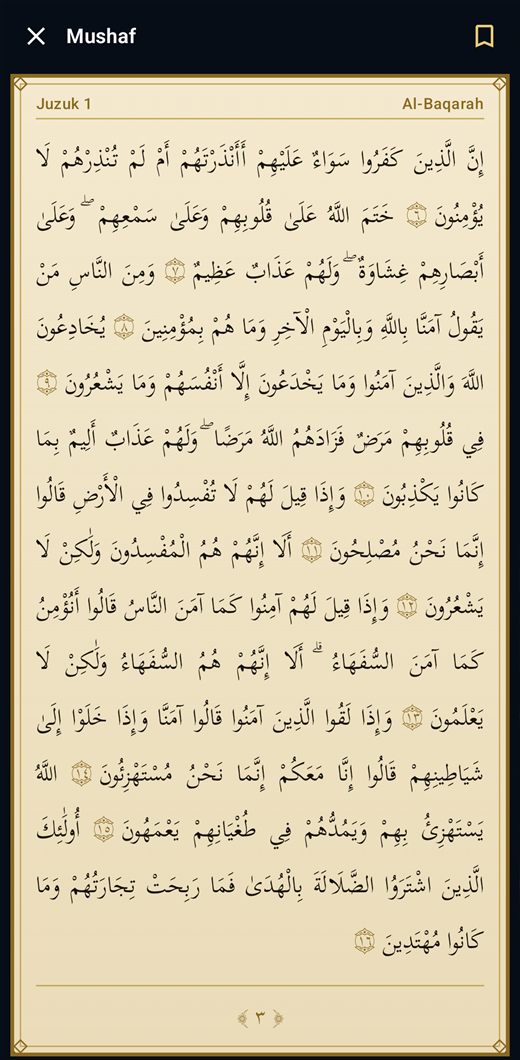 Mushaf
Juzuk 1
Al-Baqarah
إِنَّ الَّذِينَ كَفَرُوا سَوَاءٌ عَلَيْهِمْ أَأَنْذَرْتَهُمْ أَمْ لَمْ تُنْذِرْهُمْ لَا
يُؤْمِنُونَ ٦ خَتَمَ اللَّهُ عَلَىٰ قُلُوبِهِمْ وَعَلَىٰ سَمْعِهِمْ ۖ وَعَلَىٰ
أَبْصَارِهِمْ غِشَاوَةٌ ۖ وَلَهُمْ عَذَابٌ عَظِيمٌ ٧ وَمِنَ النَّاسِ مَنْ
يَقُولُ آمَنَّا بِاللَّهِ وَبِالْيَوْمِ الْآخِرِ وَمَا هُمْ بِمُؤْمِنِينَ ٨ يُخَادِعُونَ
اللَّهَ وَالَّذِينَ آمَنُوا وَمَا يَخْدَعُونَ إِلَّا أَنْفُسَهُمْ وَمَا يَشْعُرُونَ ٩
فِي قُلُوبِهِمْ مَرَضٌ فَزَادَهُمُ اللَّهُ مَرَضًا ۖ وَلَهُمْ عَذَابٌ أَلِيمٌ بِمَا
كَانُوا يَكْذِبُونَ ١٠ وَإِذَا قِيلَ لَهُمْ لَا تُفْسِدُوا فِي الْأَرْضِ قَالُوا
إِنَّمَا نَحْنُ مُصْلِحُونَ ١١ أَلَا إِنَّهُمْ هُمُ الْمُفْسِدُونَ وَلَٰكِنْ لَا
يَشْعُرُونَ ١٢ وَإِذَا قِيلَ لَهُمْ آمِنُوا كَمَا آمَنَ النَّاسُ قَالُوا أَنُؤْمِنُ
كَمَا آمَنَ السُّفَهَاءُ ۗ أَلَا إِنَّهُمْ هُمُ السُّفَهَاءُ وَلَٰكِنْ لَا
يَعْلَمُونَ ١٣ وَإِذَا لَقُوا الَّذِينَ آمَنُوا قَالُوا آمَنَّا وَإِذَا خَلَوْا إِلَىٰ
شَيَاطِينِهِمْ قَالُوا إِنَّا مَعَكُمْ إِنَّمَا نَحْنُ مُسْتَهْزِئُونَ ١٤ اللَّهُ
يَسْتَهْزِئُ بِهِمْ وَيَمُدُّهُمْ فِي طُغْيَانِهِمْ يَعْمَهُونَ ١٥ أُولَٰئِكَ
الَّذِينَ اشْتَرَوُا الضَّلَالَةَ بِالْهُدَىٰ فَمَا رَبِحَتْ تِجَارَتُهُمْ وَمَا
كَانُوا مُهْتَدِينَ ١٦
٣